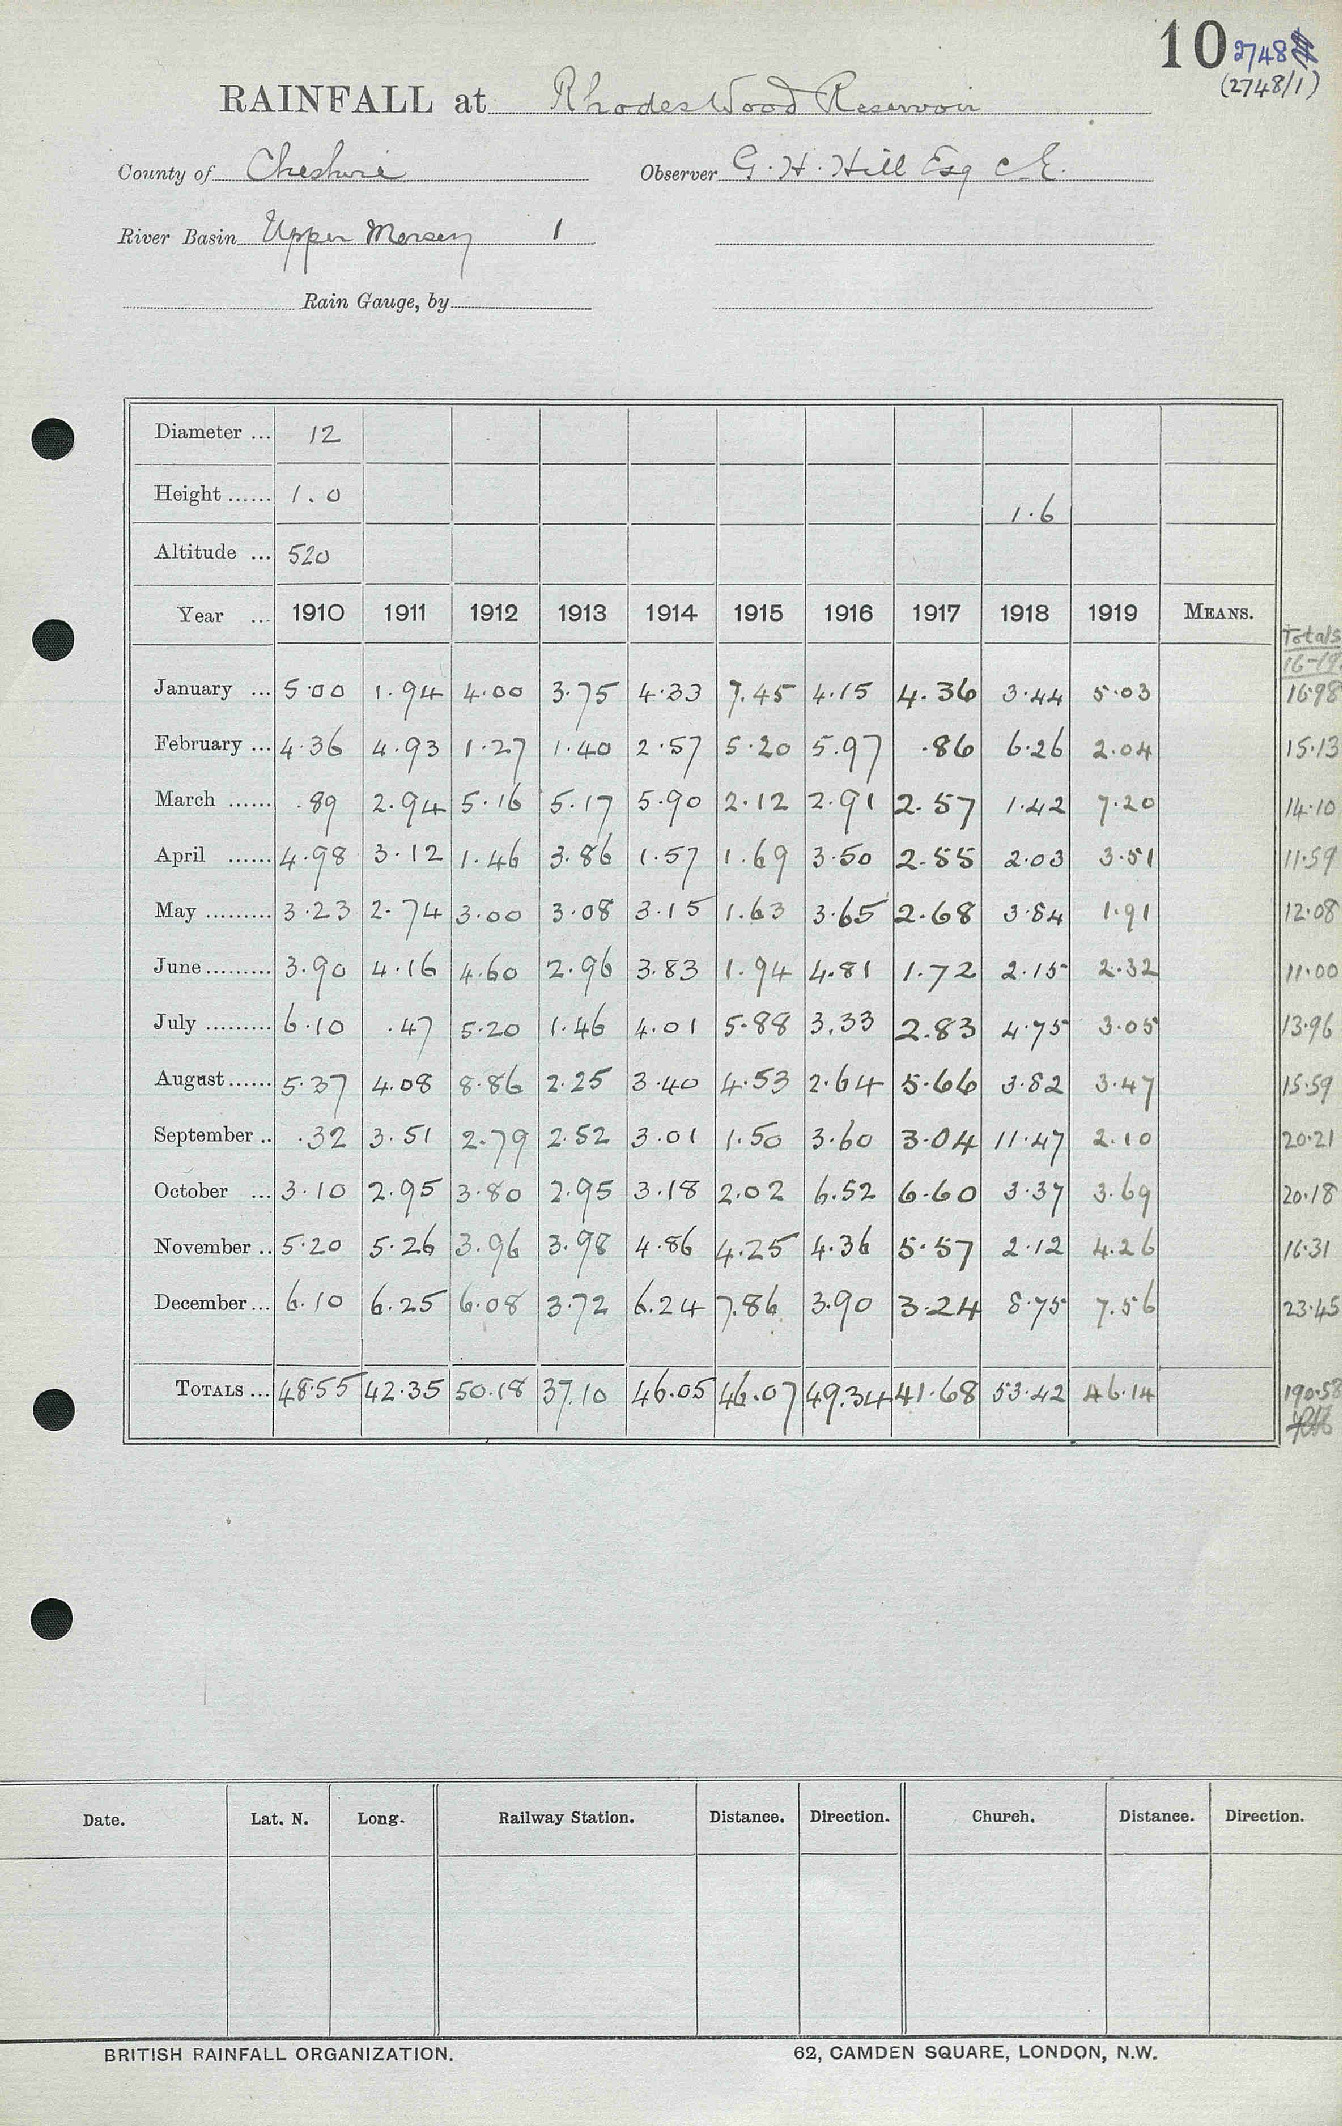 10 2748
(2748/1)
RAINFALL at Rhodes Wood Reservoir
County of Cheshire Observer G. H. Hill Esq C.E.
River Basin Upper Mersey 1
Rain Gauge, by
Diameter ... 12
Height ...... 1.0 1.6
Altitude ... 520
Year ... 1910 1911 1912 1913 1914 1915 1916 1917 1918 1919 MEANS. Totals
16-19
January ... 5.00 1.94 4.00 3.75 4.33 7.45 4.15 4.36 3.44 5.03 16.98
February ... 4.36 4.93 1.27 1.40 2.57 5.20 5.97 .86 6.26 2.04 15.13
March ...... .89 2.94 5.16 5.17 5.90 2.12 2.91 2.57 1.42 7.20 14.10
April ...... 4.98 3.12 1.46 3.86 1.57 1.69 3.50 2.55 2.03 3.51 11.59
May ......... 3.23 2.74 3.00 3.08 3.15 1.63 3.65 2.68 3.84 1.91 12.08
June ......... 3.90 4.16 4.60 2.96 3.83 1.94 4.81 1.72 2.15 2.32 11.00
July ......... 6.10 .47 5.20 1.46 4.01 5.88 3.33 2.83 4.75 3.05 13.96
August ...... 5.37 4.08 8.86 2.25 3.40 4.53 2.64 5.66 3.82 3.47 15.59
September .. .32 3.51 2.79 2.52 3.01 1.50 3.60 3.04 11.47 2.10 20.21
October ... 3.10 2.95 3.80 2.95 3.18 2.02 6.52 6.60 3.37 3.69 20.18
November .. 5.20 5.26 3.96 3.98 4.86 4.25 4.36 5.57 2.12 4.26 16.31
December ... 6.10 6.25 6.08 3.72 6.24 7.86 3.90 3.24 8.75 7.56 23.45
TOTALS ... 48.55 42.35 50.18 37.10 46.05 46.07 49.34 41.68 53.42 46.14 190.58
Date. Lat. N. Long. Railway Station. Distance. Direction. Church. Distance. Direction.
BRITISH RAINFALL ORGANIZATION. 62, CAMDEN SQUARE, LONDON, N.W.